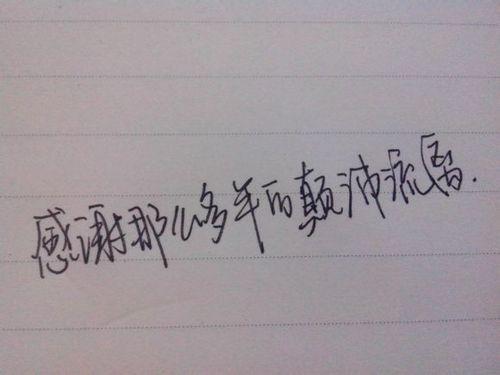 感谢那么多年的颠沛流离.